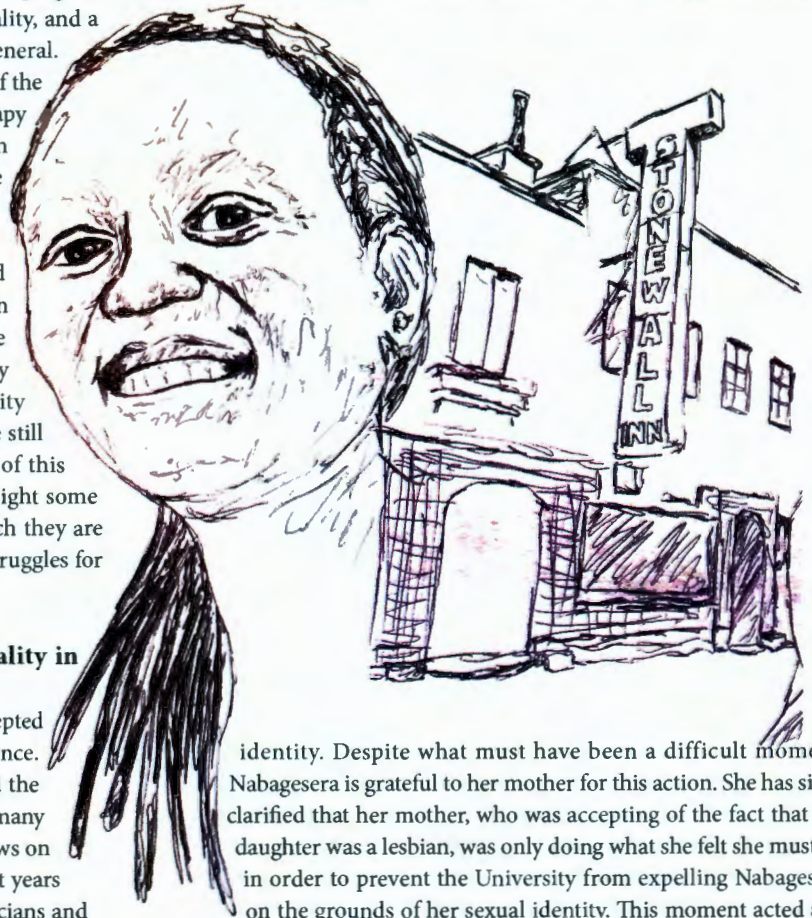 lity, and a
eneral.
f the
apy
n
e
d
n
e
y
ity
still
of this
ight some
ch they are
ruggles for
ality in
epted
nce.
the
many
ws on
t years
cians and
STONEWALL
INN
identity. Despite what must have been a difficult mome
Nabagesera is grateful to her mother for this action. She has si
clarified that her mother, who was accepting of the fact that
daughter was a lesbian, was only doing what she felt she must
in order to prevent the University from expelling Nabages
on the grounds of her sexual identity. This moment acted